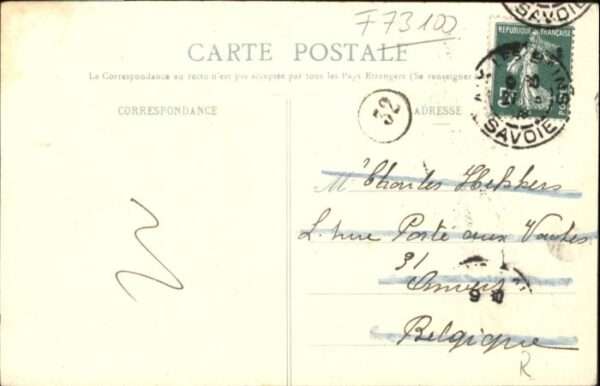 F73100
CARTE POSTALE
La Correspondance au recto n'est pas acceptée par tous les Pays Etrangers (Se renseigner
CORRESPONDANCE
ADRESSE
52
REPUBLIQUE FRANÇAISE
SAVOIE
SAVOIE
Mr Charles Hekkers
L. rue Porte aux Vaches
31
Anvers
Belgique
R